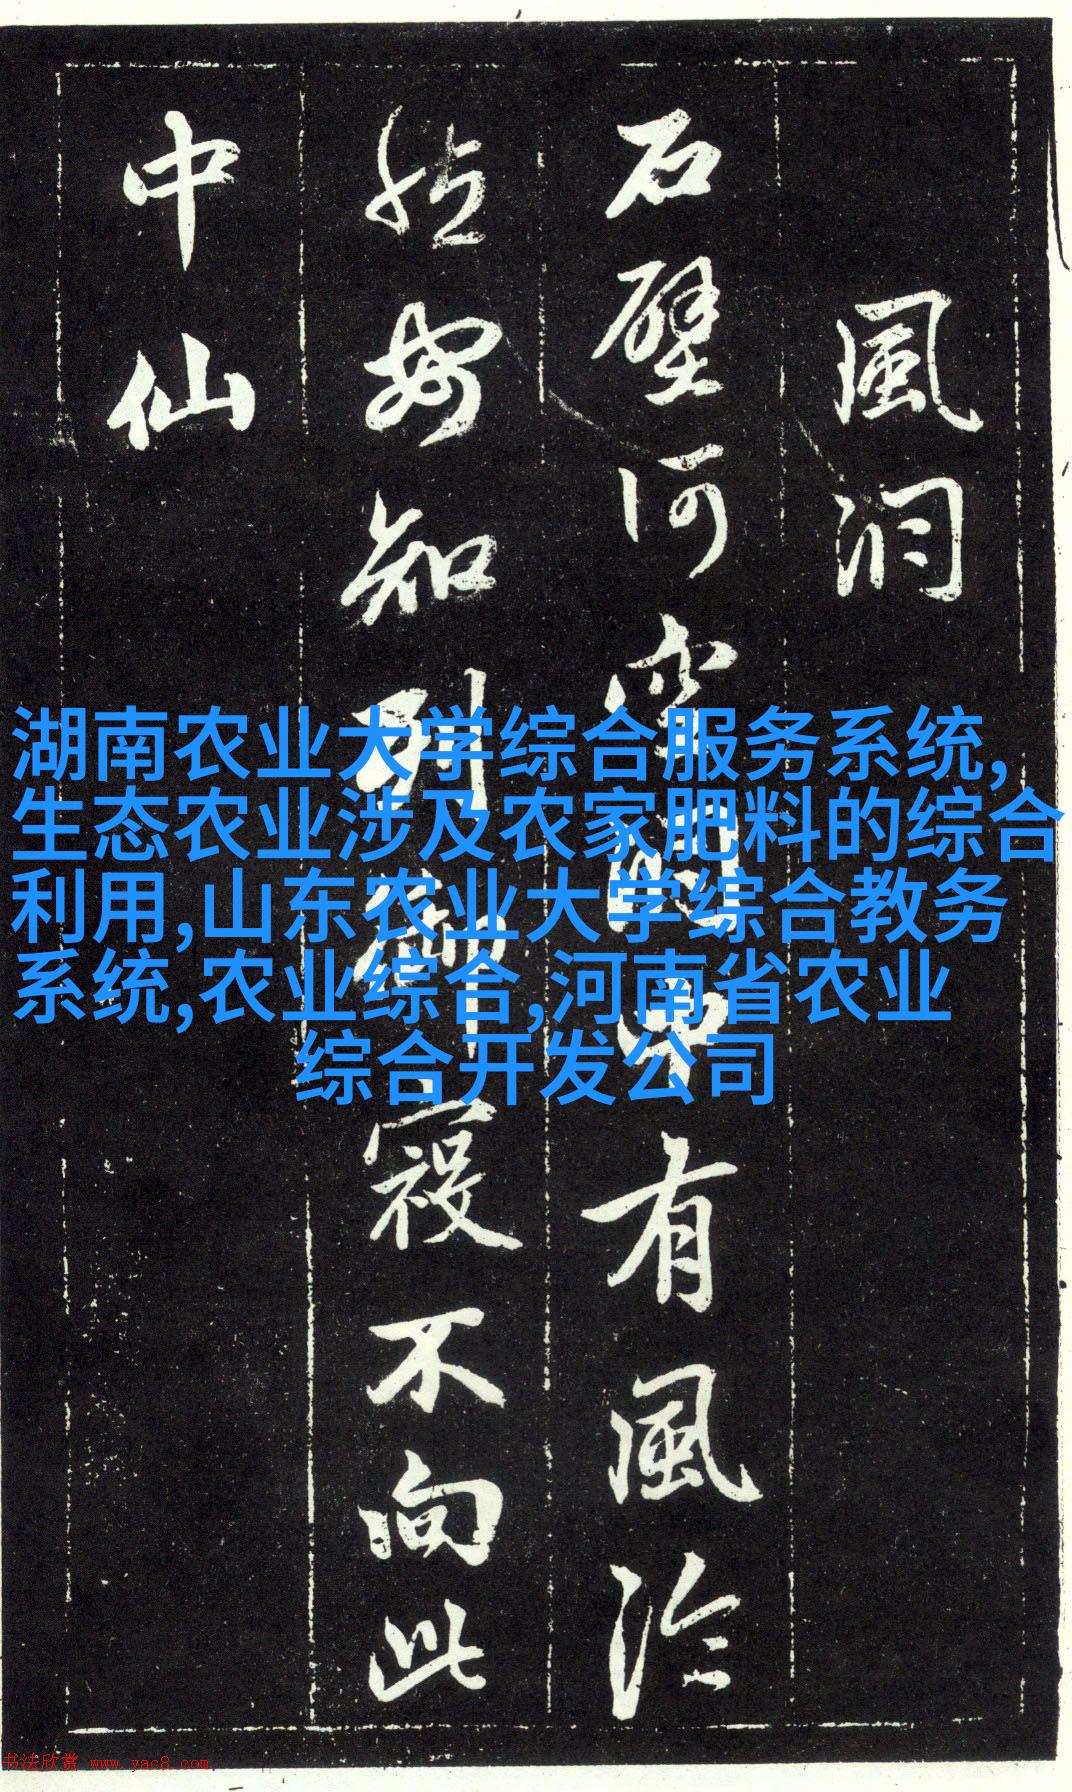 風洞
石壁何中有風泠
然安知列御寇不向此
中仙
湖南农业大学综合服务系统,
生态农业涉及农家肥料的综合
利用,山东农业大学综合教务
系统,农业综合,河南省农业
综合开发公司
书法欣赏 www.yac8.com